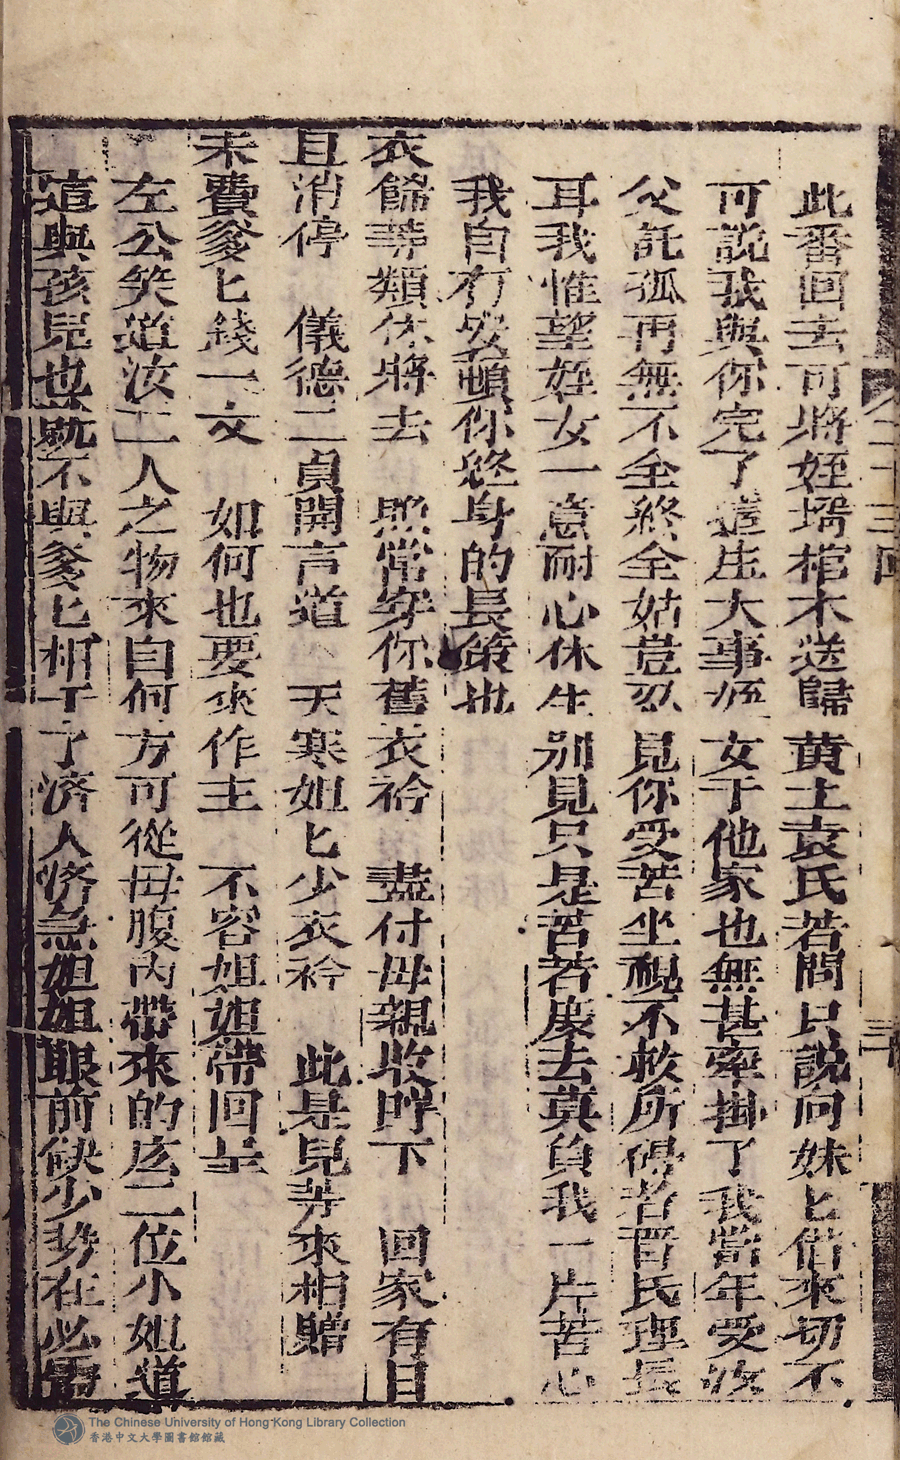 此番回去可將姪壻棺木送歸黄土袁氏若問只說向妹匕借來切不
可説我與你完了這庄大事姪女于他家也無甚牽掛了我當年受汝
父託孤再無不全終全姑豈忍見你受苦坐視不救所碍者晋氏理長
耳我惟望姪女一意耐心休生別見只是苦着度去莫負我一片苦心
我自有安頓你終身的長策也
衣餙等類休將去　照常穿你舊衣衿　盡付母親收貯下　回家有目
且消停　儀德二貞開言道　天寒姐匕少衣衿　此是兒等來相贈
未費爹匕錢一文　如何也要來作主　不容姐姐帶回去
左公笑道汝二人之物來自何方可從母腹內帶來的庅二位小姐道
這與孩兒也就不與爹匕相干了濟人濟急姐姐眼前缺少勢在必需
二十三回
三十
The Chinese University of Hong Kong Library Collection
香港中文大學圖書館館藏